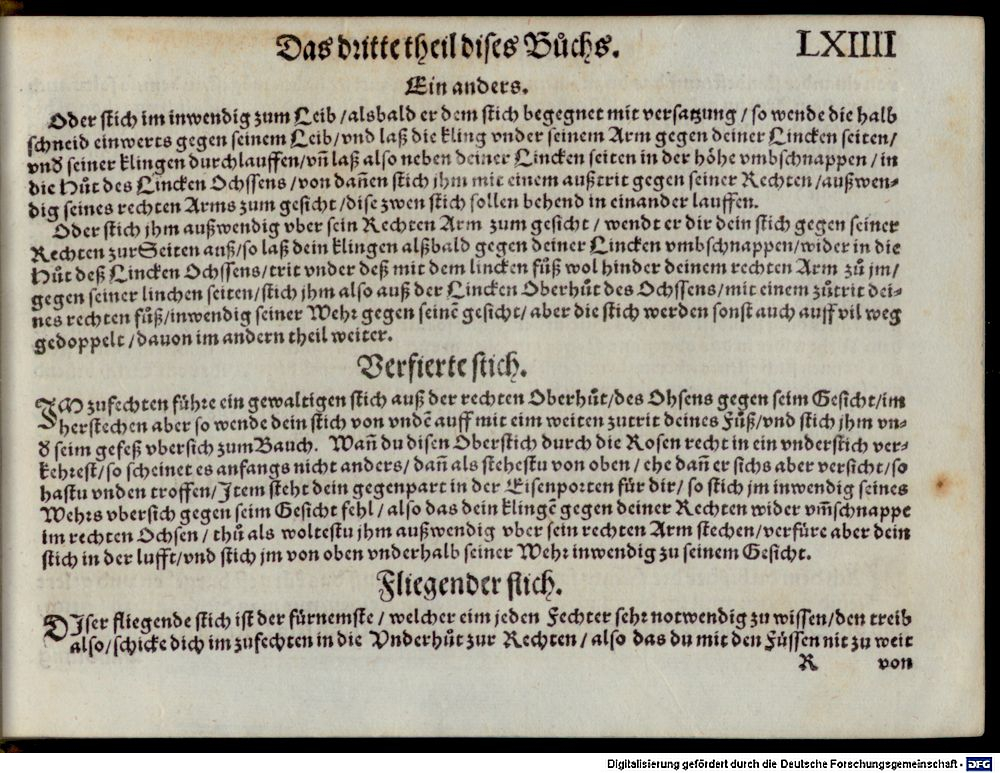 Das dritte theil dises Bůchs. LXIIII
Ein anders.
Oder stich im inwendig zum Leib / alsbald er dem stich begegnet mit versatzung / so wende die halb
schneid einwerts gegen seinem Leib / vnd laß die kling vnder seinem Arm gegen deiner Lincken seiten /
vnd seiner klingen durchlauffen / vñ laß also neben deiner Lincken seiten in der höhe vmbschnappen / in
die Hůt des Lincken Ochssens / von dañen stich jhm mit einem außtrit gegen seiner Rechten / außwen-
dig seines rechten Arms zum gesicht / dise zwen stich sollen behend in einander lauffen.
Oder stich jhm außwendig vber sein Rechten Arm zum gesicht / wendt er dir dein stich gegen seiner
Rechten zur Seiten auß / so laß dein klingen alßbald gegen deiner Lincken vmbschnappen / wider in die
Hůt deß Lincken Ochssens / trit vnder deß mit dem lincken fůß wol hinder deinem rechten Arm zů jm /
gegen seiner linchen seiten / stich jhm also auß der Lincken Oberhůt des Ochssens / mit einem zůtrit dei-
nes rechten fůß / inwendig seiner Wehr gegen seinē gesicht / aber die stich werden sonst auch auff vil weg
gedoppelt / dauon im andern theil weiter.
Verfierte stich.
IM zufechten führe ein gewaltigen stich auß der rechten Oberhůt / des Ohsens gegen seim Gesicht / im
herstechen aber so wende dein stich von vndē auff mit eim weiten zutrit deines Fůß / vnd stich jhm vn-
d̕ seim gefeß vbersich zum Bauch. Wañ du disen Oberstich durch die Rosen recht in ein vnderstich ver-
kehrest / so scheinet es anfangs nicht anders / dañ als stehestu von oben / ehe dañ er sichs aber versicht / so
hastu vnden troffen / Item steht dein gegenpart in der Eisenporten für dir / so stich jm inwendig seines
Wehrs vbersich gegen seim Gesicht fehl / also das dein klingē gegen deiner Rechten wider vm̃schnappe
im rechten Ochsen / thů als woltestu jhm außwendig vber sein rechten Arm stechen / verfüre aber dein
stich in der lufft / vnd stich jm von oben vnderhalb seiner Wehr inwendig zu seinem Gesicht.
Fliegender stich.
DIser fliegende stich ist der fürnemste / welcher eim jeden Fechter sehr notwendig zu wissen / den treib
also / schicke dich im zufechten in die Vnderhůt zur Rechten / also das du mit den Füssen nit zu weit
R von
Digitalisierung gefördert durch die Deutsche Forschungsgemeinschaft - DFG